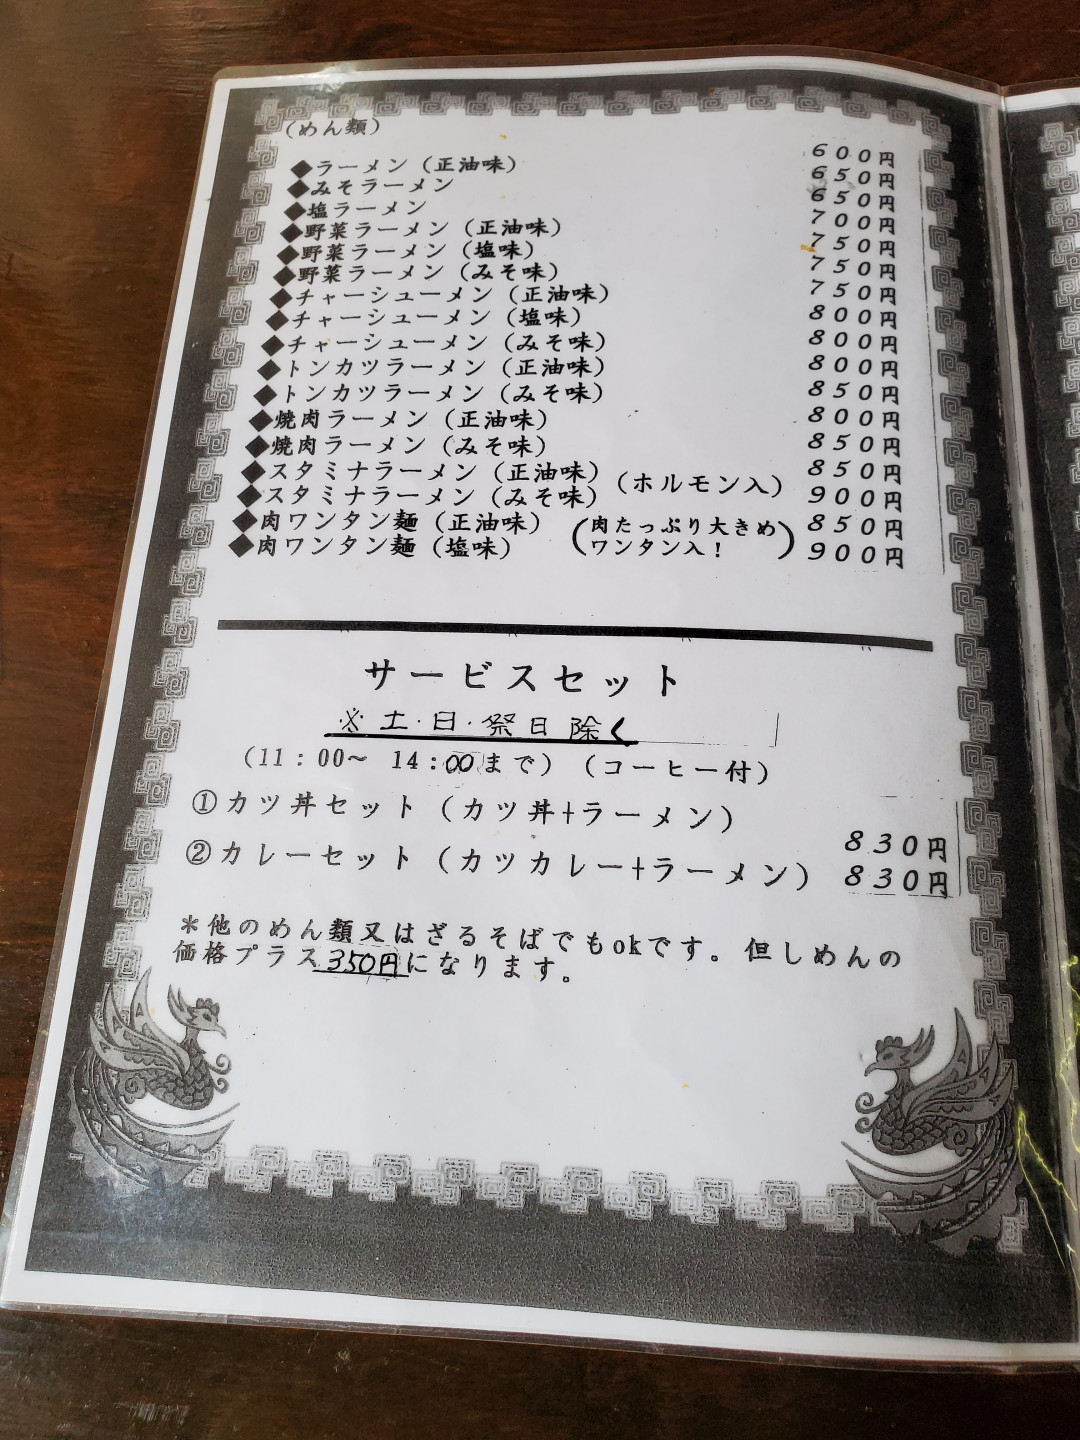 (めん類)
◆ラーメン(正油味) 600円
◆みそラーメン 650円
◆塩ラーメン 650円
◆野菜ラーメン(正油味) 700円
◆野菜ラーメン(塩味) 750円
◆野菜ラーメン(みそ味) 750円
◆チャーシューメン(正油味) 750円
◆チャーシューメン(塩味) 800円
◆チャーシューメン(みそ味) 800円
◆トンカツラーメン(正油味) 800円
◆トンカツラーメン(みそ味) 850円
◆焼肉ラーメン(正油味) 800円
◆焼肉ラーメン(みそ味) 850円
◆スタミナラーメン(正油味) 850円
◆スタミナラーメン(みそ味) (ホルモン入) 900円
◆肉ワンタン麺(正油味) (肉たっぷり大きめ 850円
◆肉ワンタン麺(塩味) ワンタン入!) 900円
サービスセット
※土・日・祭日除く
(11:00~ 14:00まで)(コーヒー付)
①カツ丼セット(カツ丼+ラーメン) 830円
②カレーセット(カツカレー+ラーメン) 830円
*他のめん類又はざるそばでもokです。但しめんの
価格プラス350円になります。